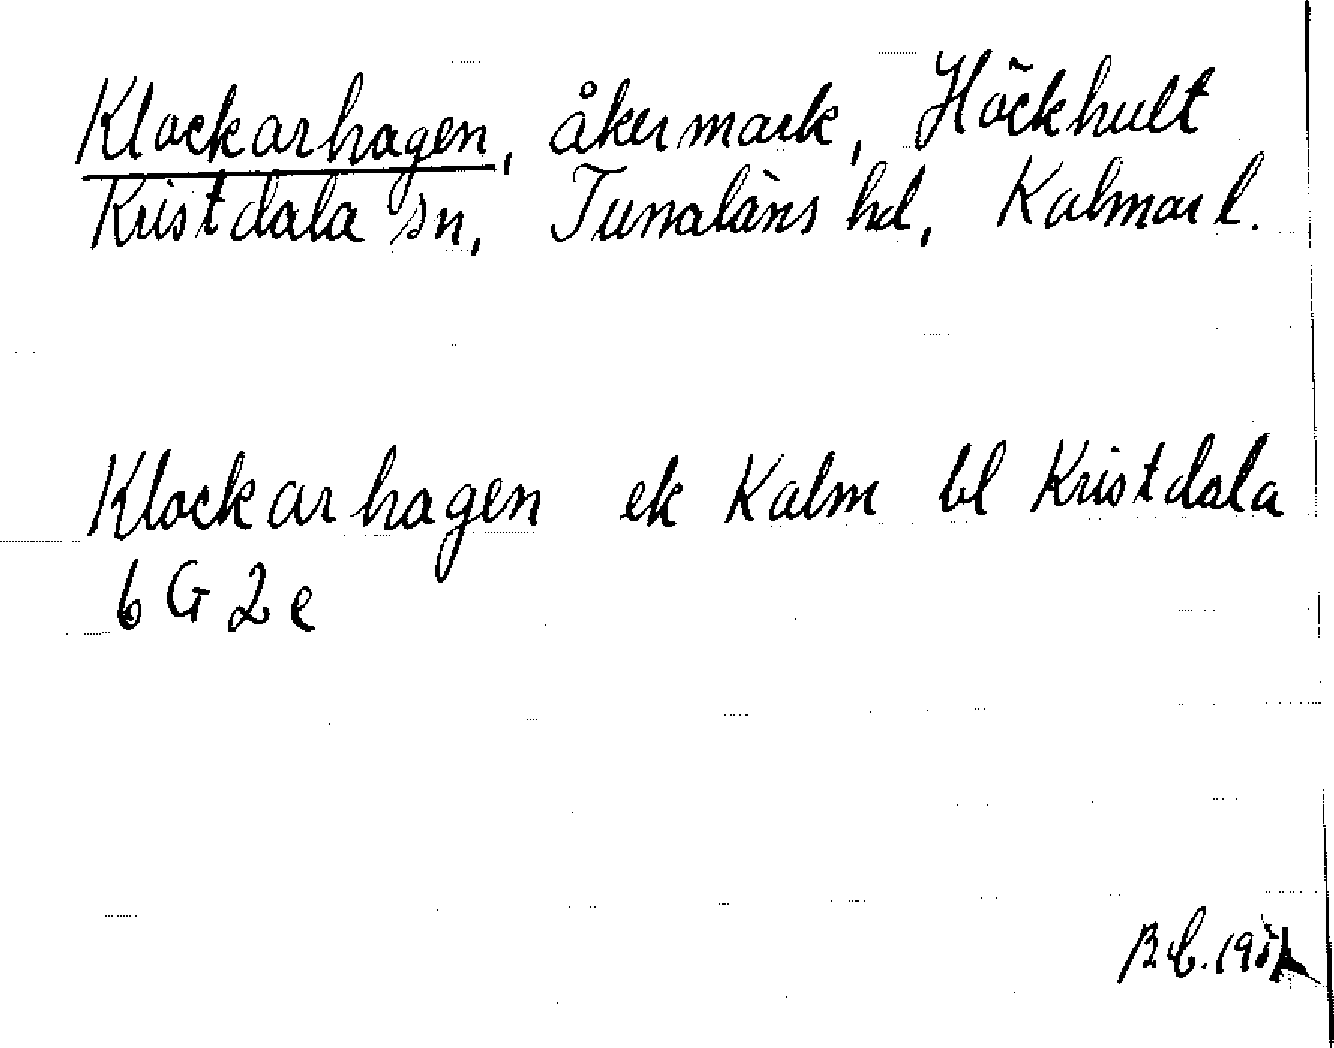 Klockarhagen, åkermark, Höckhult
Kristdala sn, Tunaläns hd, Kalmar l.
Klockarhagen ek Kalm bl Kristdala
6 G 2 e
B.C.